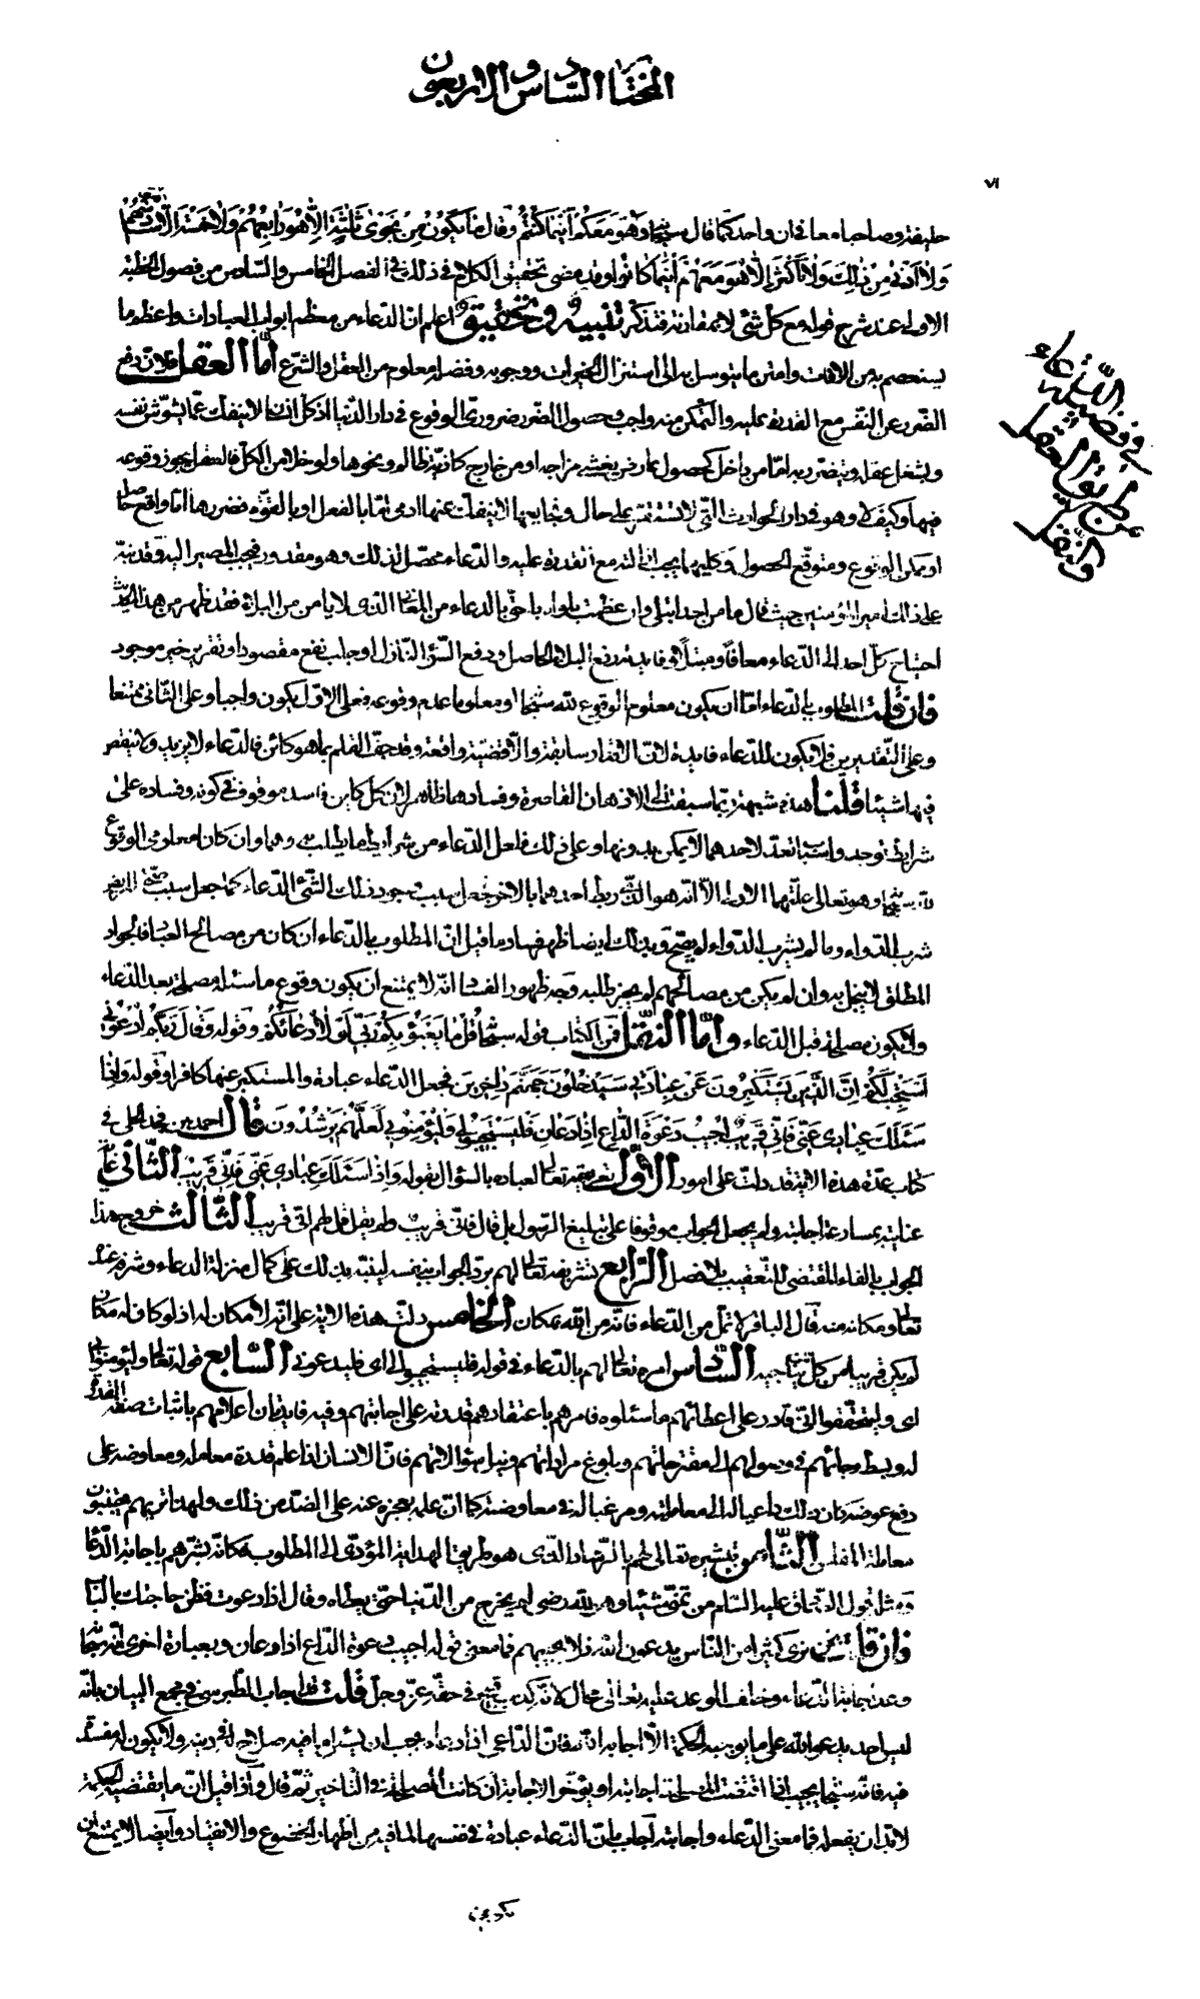 المختار السادس والاربعون
٧١
خليفة وصاحبا معا في ان واحد كما قال سبحانه وهو معكم اينما كنتم وقال ما يكون من نجوى ثلثة الا هو رابعهم ولا خمسة الا هو سادسهم
ولا ادنى من ذلك ولا اكثر الا هو معهم اينما كانوا وقد مضى تحقيق الكلام في ذلك في الفصل الخامس والسادس من فصول الخطبة
الاولى عند شرح قوله مع كل شئ لا بمقارنة فتذكر تنبيه وتحقيق اعلم ان الدعاء من معظم ابواب العبادات واعظم ما
يستعصم به من الافات وامتن ما يتوسل به الى استنزال الخيرات ووجوبه وفضله معلوم من العقل والشرع اما العقل فلان دفع
الضرر عن النفس مع القدرة عليه والتمكن منه واجب وحصول الضرر ضروري الوقوع في دار الدنيا اذ كل انسان لا ينفك عما يشوش نفسه
ويشغل عقله ويتضرر به اما من داخل كحصول عارض يغشي مزاجه او من خارج كاذية ظالم ونحوها ولو خلا من الكل فالعقل يجوز وقوعه
فيها وكيف لا وهو في دار الحوادث التي لا تستقر على حال وفجايعها لا ينفك عنها ادمي اما بالفعل او بالقوة فضررها اما واقع حاصل
او ممكن الوقوع ومتوقع الحصول وكليهما يجب ازالته مع القدرة عليه والدعاء محصل لذلك وهو مقدور فيجب المصير اليه وقد نبه
على ذلك امير المؤمنين حيث قال ما من احد ابتلى وان عظمت بلواه باحق بالدعاء من المعافى الذي لا يامن من البلاء فقد ظهر من هذا الحديث
احتياج كل احد الى الدعاء معافا ومبتلا وفايدته رفع البلاء الحاصل ودفع السوء النازل او جلب نفع مقصود او تقرير خير موجود
فان قلت المطلوب بالدعاء اما ان يكون معلوم الوقوع لله سبحانه او معلوما عدم وقوعه فعلى الاول يكون واجبا وعلى الثاني ممتنعا
وعلى التقديرين فلا يكون للدعاء فايدة لان الاقدار سابقة والاقضية واقعة وقد جف القلم بما هو كائن فالدعاء لا يزيد ولا ينقص
فيها شيئا قلنا هذه شبهة ربما سبقت الى الاذهان القاصرة وفسادها ظاهر لان كل كاين فاسد موقوف في كونه وفساده على
شرايط توجد واسباب تعد لاحدهما لا يمكن بدونها وعلى ذلك فلعل الدعاء من شرايط ما يطلب به وهما وان كان معلومي الوقوع
لله سبحانه وهو تعالى علتهما الاولى الا انه هو الذي ربط احدهما بالاخر فجعل سبب وجود ذلك الشئ الدعاء كما جعل سبب صحة المريض
شرب الدواء وما لم يشرب الدواء لم يصح وبذلك ايضا ظهر فساد ما قيل ان المطلوب بالدعاء ان كان من مصالح العباد فالجواد
المطلق لا يبخل به وان لم يكن من مصالحهم لم يجز طلبه وجه ظهور الفساد انه لا يمتنع ان يكون وقوع ما سئله مصلحة بعد الدعاء
ولا يكون مصلحة قبل الدعاء واما النقل فمن الكتاب قوله سبحانه قل ما يعبؤ بكم ربي لولا دعائكم وقوله وقال ربكم ادعوني
استجب لكم ان الذين يستكبرون عن عبادتي سيدخلون جهنم داخرين فجعل الدعاء عبادة والمستكبر عنها كافرا وقوله واذا
سئلك عبادي عني فاني قريب اجيب دعوة الداع اذا دعان فليستجيبوا لي وليؤمنوا بي لعلهم يرشدون قال احمد بن فهد الحلي في
كتاب عدة هذه الاية قد دلت على امور الاول تعريضه تعالى لعباده بالسؤال بقوله واذا سئلك عبادي عني فاني قريب الثاني غاية
عنايته بمسارعة اجابته ولم يجعل الجواب موقوفا على تبليغ الرسول بل قال فاني قريب ولم يقل قل لهم اني قريب الثالث خروج هذا
الجواب بالفاء المقتضي للتعقيب بلا فصل الرابع تشريفه تعالى لهم برد الجواب بنفسه لينبه بذلك على كمال منزلة الدعاء وشرفه عنده
تعالى ومكانه منه قال الباقر لا تمل من الدعاء فانه من الله بمكان الخامس دلت هذه الاية على انه لا مكان له اذ لو كان له مكان
لم يكن قريبا من كل يناجيه السادس امره تعالى لهم بالدعاء في قوله فليستجيبوا لي اي فليدعوني السابع قوله تعالى وليؤمنوا بي
اي وليتحققوا اني قادر على اعطائهم ما سئلوه فامرهم باعتقادهم قدرته على اجابتهم وفيه فايدتان اعلامهم باثبات صفة القدرة
له وبسط رجائهم في وصولهم الى مقترحاتهم وبلوغ مراداتهم ونيل سؤالاتهم فان الانسان اذا علم قدرة معامله ومعاوضه على
دفع عوضه كان ذلك داعيا له الى معاملته ومرغبا له في معاوضته كما ان علمه بعجزه عنه على الضد من ذلك ولهذا تريهم يجتنبون
معاملة المفلس الثامن تبشيره تعالى لهم بالرشاد الذي هو طريق الهداية المؤدي الى المطلوب فكانه بشرهم باجابة الدعاء
ومثله قول الصادق عليه السلام من تمنى شيئا وهو لله رضى لم يخرج من الدنيا حتى يعطاه وقال اذا دعوت فظن حاجتك بالباب
فان قلت نحن نرى كثيرا من الناس يدعون الله فلا يجيبهم فما معنى قوله اجيب دعوة الداع اذا دعان وبعبارة اخرى انه سبحانه
وعد اجابة الدعاء وخلف الوعد عليه تعالى محال لانه كذب قبيح في حقه عز وجل قلت قد اجاب الطبرسي في مجمع البيان بانه
ليس احد يدعو الله على ما يوجبه الحكمة الا اجابه الله فان الداعي اذا دعاه يجب ان يسئل ما فيه صلاح له في دينه ولا يكون له مفسدة
فيه فانه سبحانه يجيب اذا اقتضت المصلحة اجابته او يؤخر الاجابة ان كانت المصلحة في التاخير ثم قال واذا قيل ان ما يقتضيه الحكمة
لا بد ان يفعله فما معنى الدعاء واجابته اجاب بان الدعاء عبادة في نفسها لما فيه من اظهار الخضوع والانقياد وايضا لا يمتنع ان
يكون
في فضيلة الدعاء
عن طريق العقل
والنقل